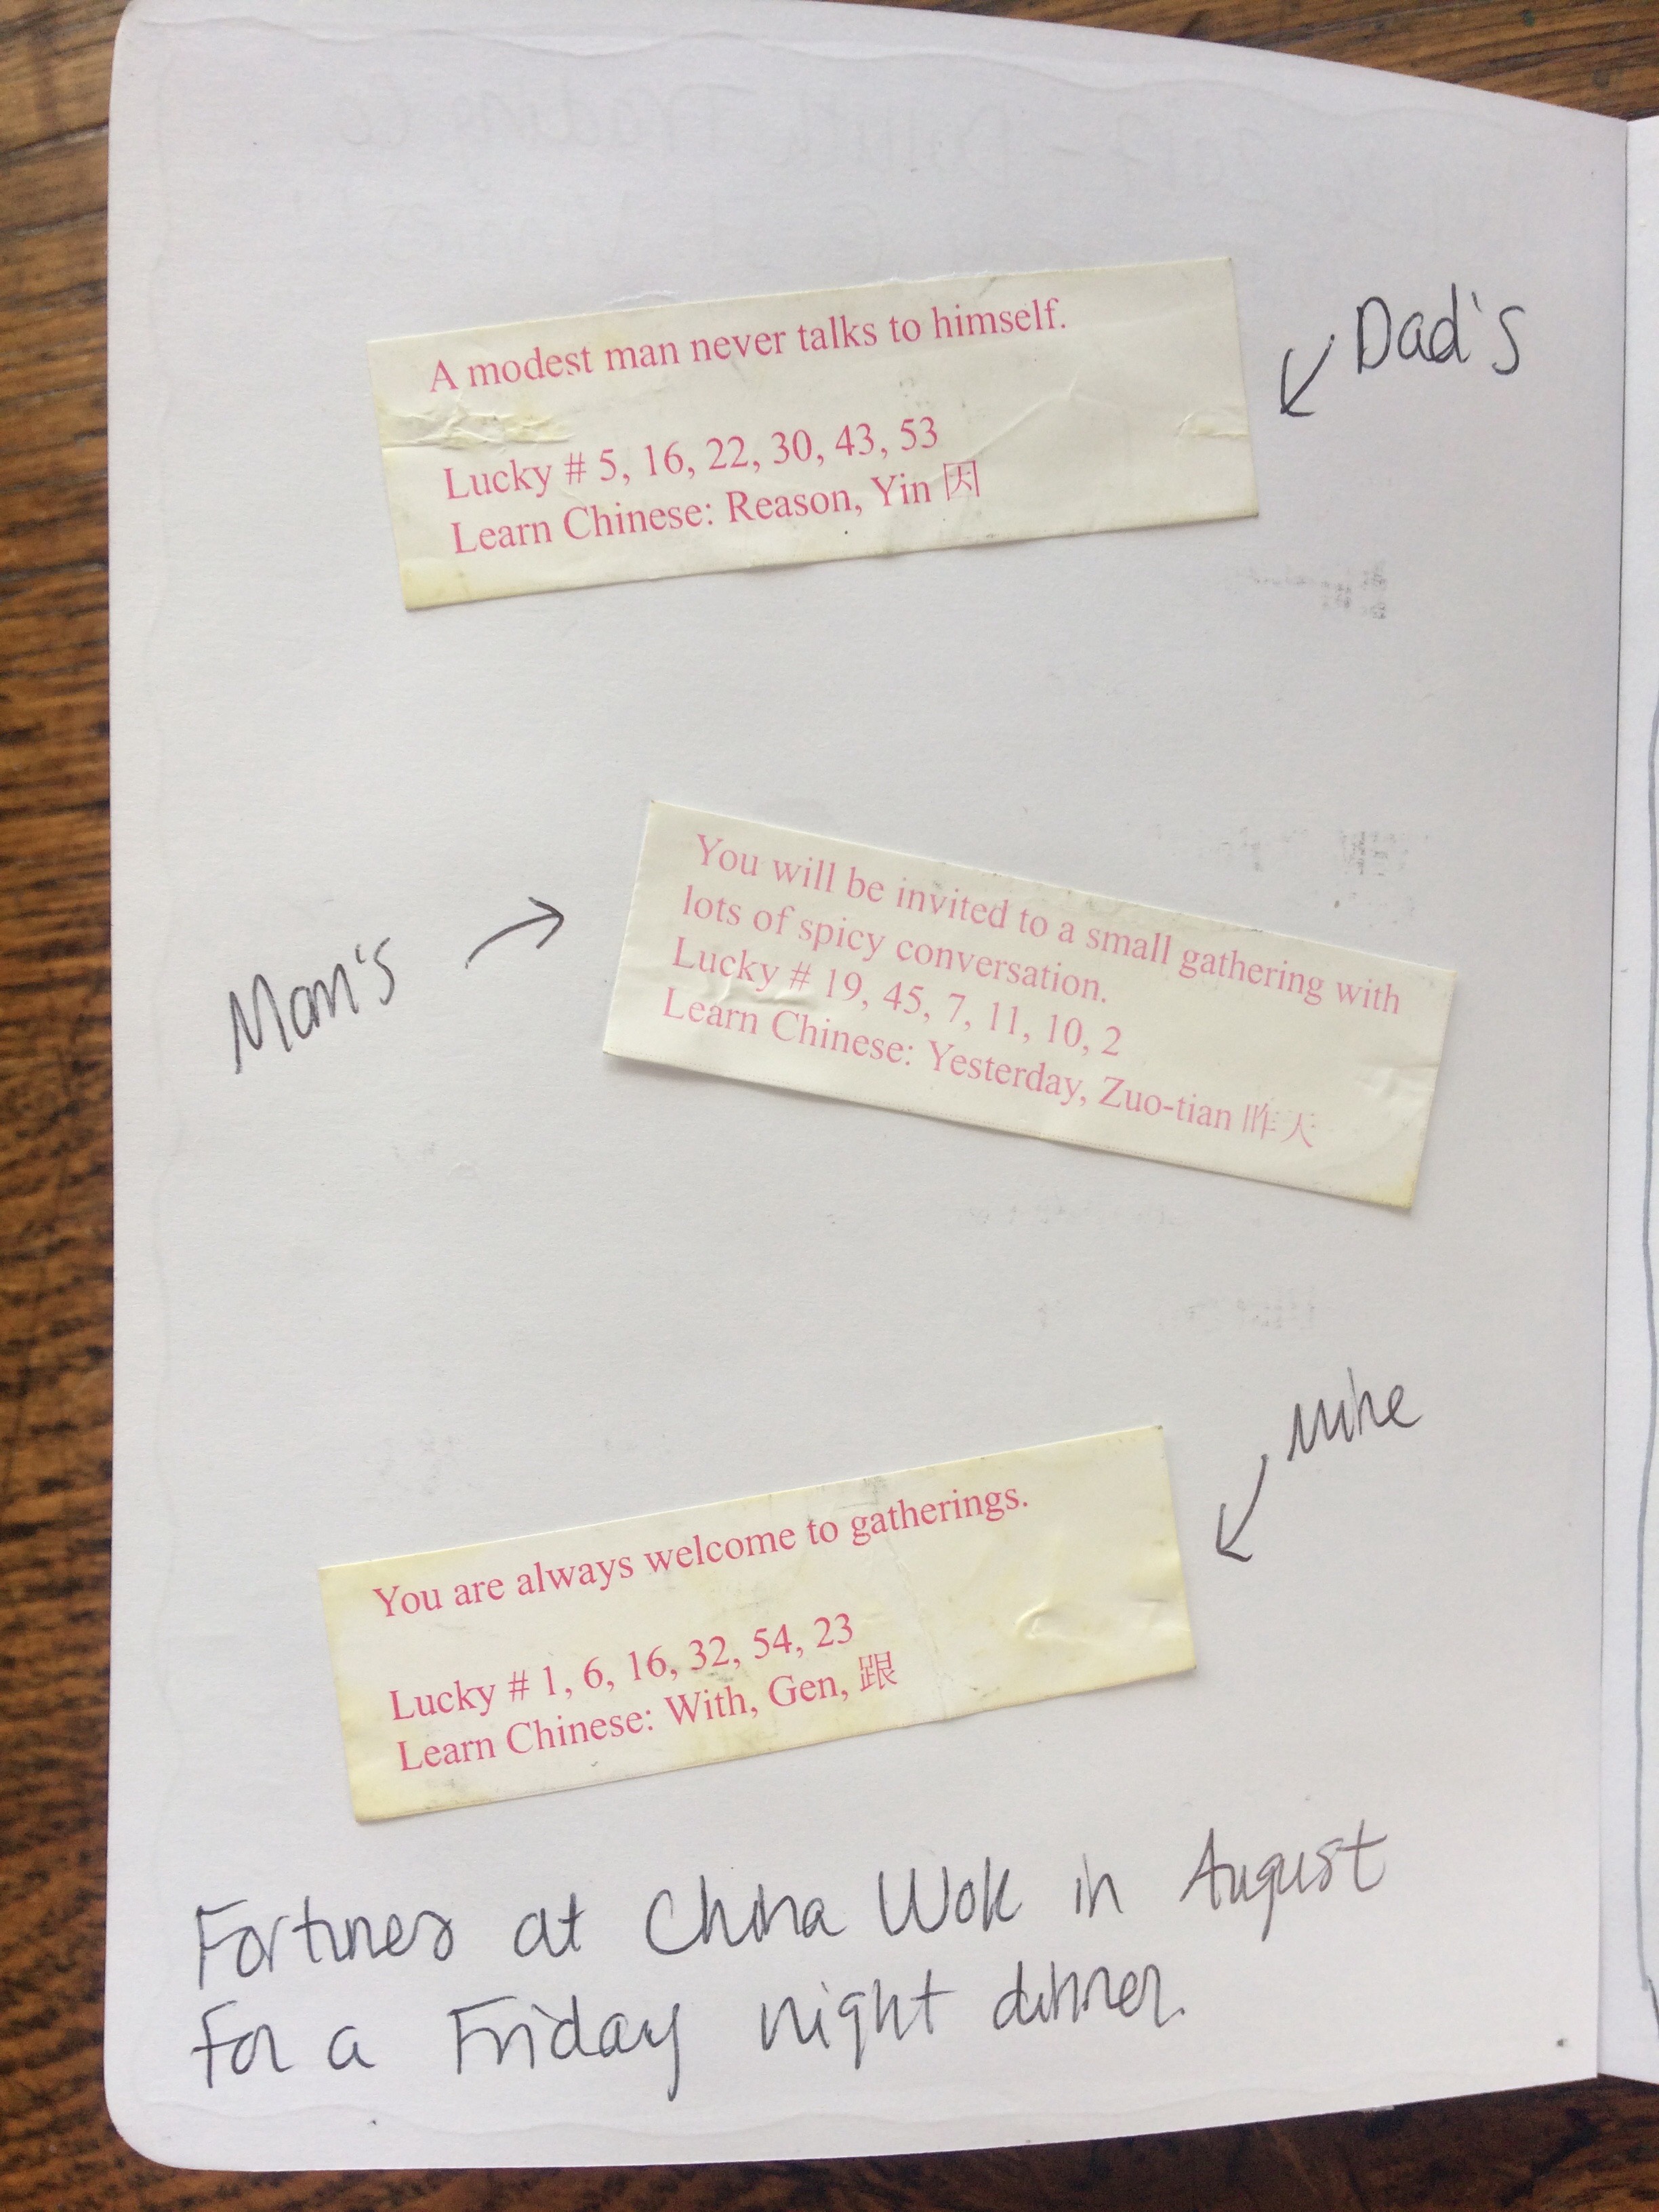 A modest man never talks to himself.
Lucky # 5, 16, 22, 30, 43, 53
Learn Chinese: Reason, Yin 因
Dad's
You will be invited to a small gathering with
lots of spicy conversation.
Lucky # 19, 45, 7, 11, 10, 2
Learn Chinese: Yesterday, Zuo-tian 昨天
Mom's
mine
You are always welcome to gatherings.
Lucky # 1, 6, 16, 32, 54, 23
Learn Chinese: With, Gen, 跟
Fortunes at China Wok in August
for a Friday night dinner.